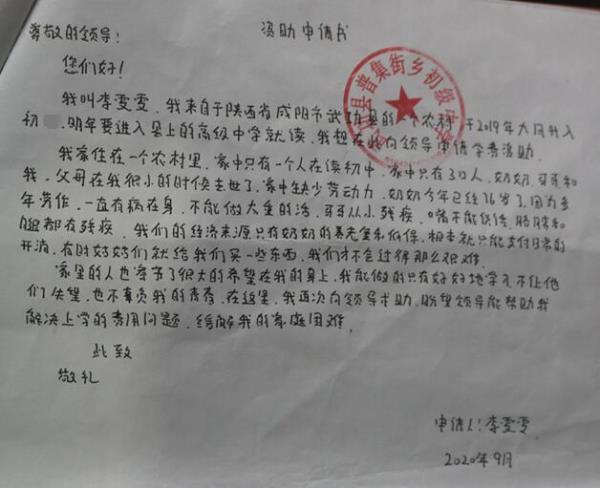 资助申请书
尊敬的领导:
您们好!
我叫李雯雯,我来自于陕西省咸阳市武功县的一个农村,于2019年九月升入
初 ,明年要进入县上的高级中学就读,我想在此向领导申请学费资助。
我家住在一个农村里,家中只有一个人在读初中,家中只有3口人,奶奶,哥哥和
我,父母在我很小的时候去世了,家中缺少劳动力,奶奶今年已经76岁了,因为多
年劳作,一直有病在身,不能做太重的活,哥哥从小残疾,嘴不能说话,胳膊和
腿都有残疾,我们的经济来源只有奶奶的养老金和低保,根本就只能支付日常的
开消,有时好好们就给我们买一些东西,我们才不会过得那么艰难。
家里的人也寄予了很大的希望在我的身上,我能做的只有好好地学习不让他
们失望,也不辜负我的青春,在这里,我再次向领导求助,盼望领导能帮助我
解决上学的费用问题,缓解我的家庭困难。
此致
敬礼
申请人:李雯雯
2020年9月
武功县普集街乡初级中学